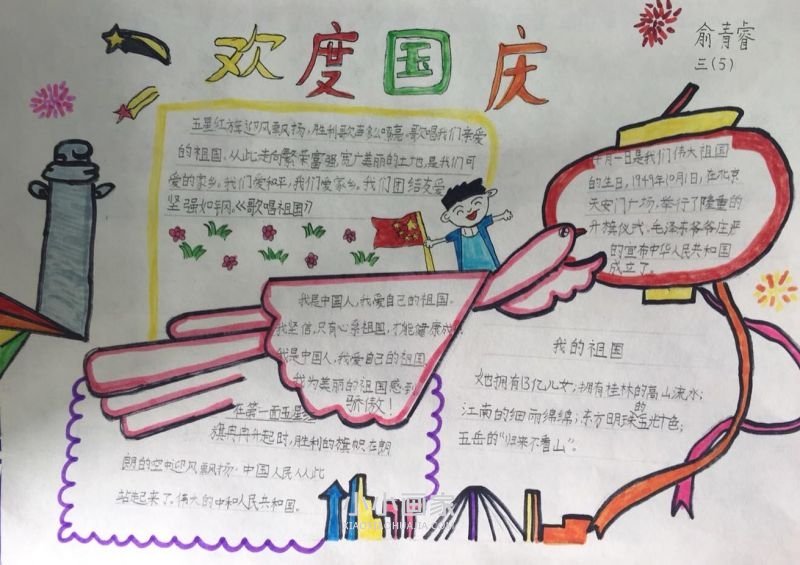 欢度国庆
俞青睿
三(5)
五星红旗迎风飘扬,胜利歌声多么嘹亮,歌唱我们亲爱
的祖国,从此走向繁荣富强,宽广美丽的土地,是我们可
爱的家乡。我们爱和平,我们爱家乡。我们团结友爱
坚强如钢。《歌唱祖国》
十月一日是我们伟大祖国
的生日,1949年10月1日,在北京
天安门广场,举行了隆重的
升旗仪式。毛泽东爷爷庄严
的宣布中华人民共和国
成立了。
我是中国人,我爱自己的祖国。
我坚信,只有心系祖国,才能健康成
我是中国人,我爱自己的祖国
我为美丽的祖国感到
骄傲!
我的祖国
她拥有13亿儿女;拥有桂林的高山流水;
江南的细雨绵绵;东方明珠的宝光十色;
五岳的“归来不看山”。
在第一面五星红
旗冉冉升起时,胜利的旗帜在朗
朗的空中迎风飘扬.中国人民从此
站起来了,伟大的中和人民共和国。
小小画家
XIAOXIAOHUAJIA.COM